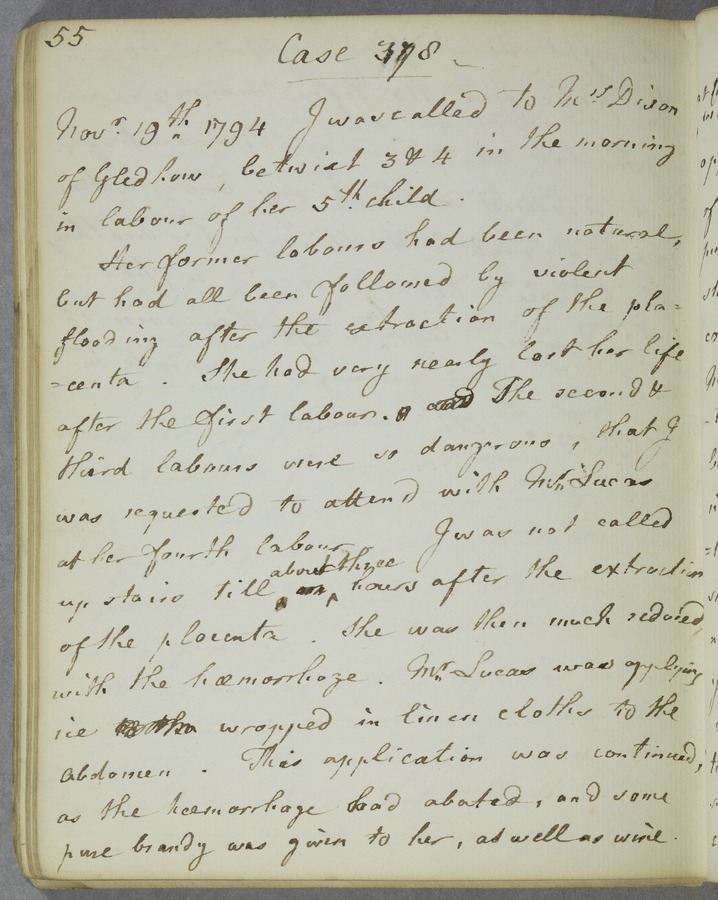 55
Case 378
Novr. 19th 1794 I was called to Mrs Dixon
of Gledhow, betwixt 3 & 4 in the morning
in labour of her 5th child.
Her former labours had been natural,
but had all been followed by violent
flooding after the extraction of the pla=
=centa. She had very nearly lost her life
after the first labour. The second &
third labours were so dangerous, that I
was requested to attend with Mr. Lucas
at her fourth labour. I was not called
up stairs till about three hours after the extraction
of the placenta. She was then much reduced
with the hæmorrhage. Mr. Lucas was applying
ice wrapped in linen cloths to the
abdomen. This application was continued,
as the hæmorrhage had abated, and some
pure brandy was given to her, as well as wine.